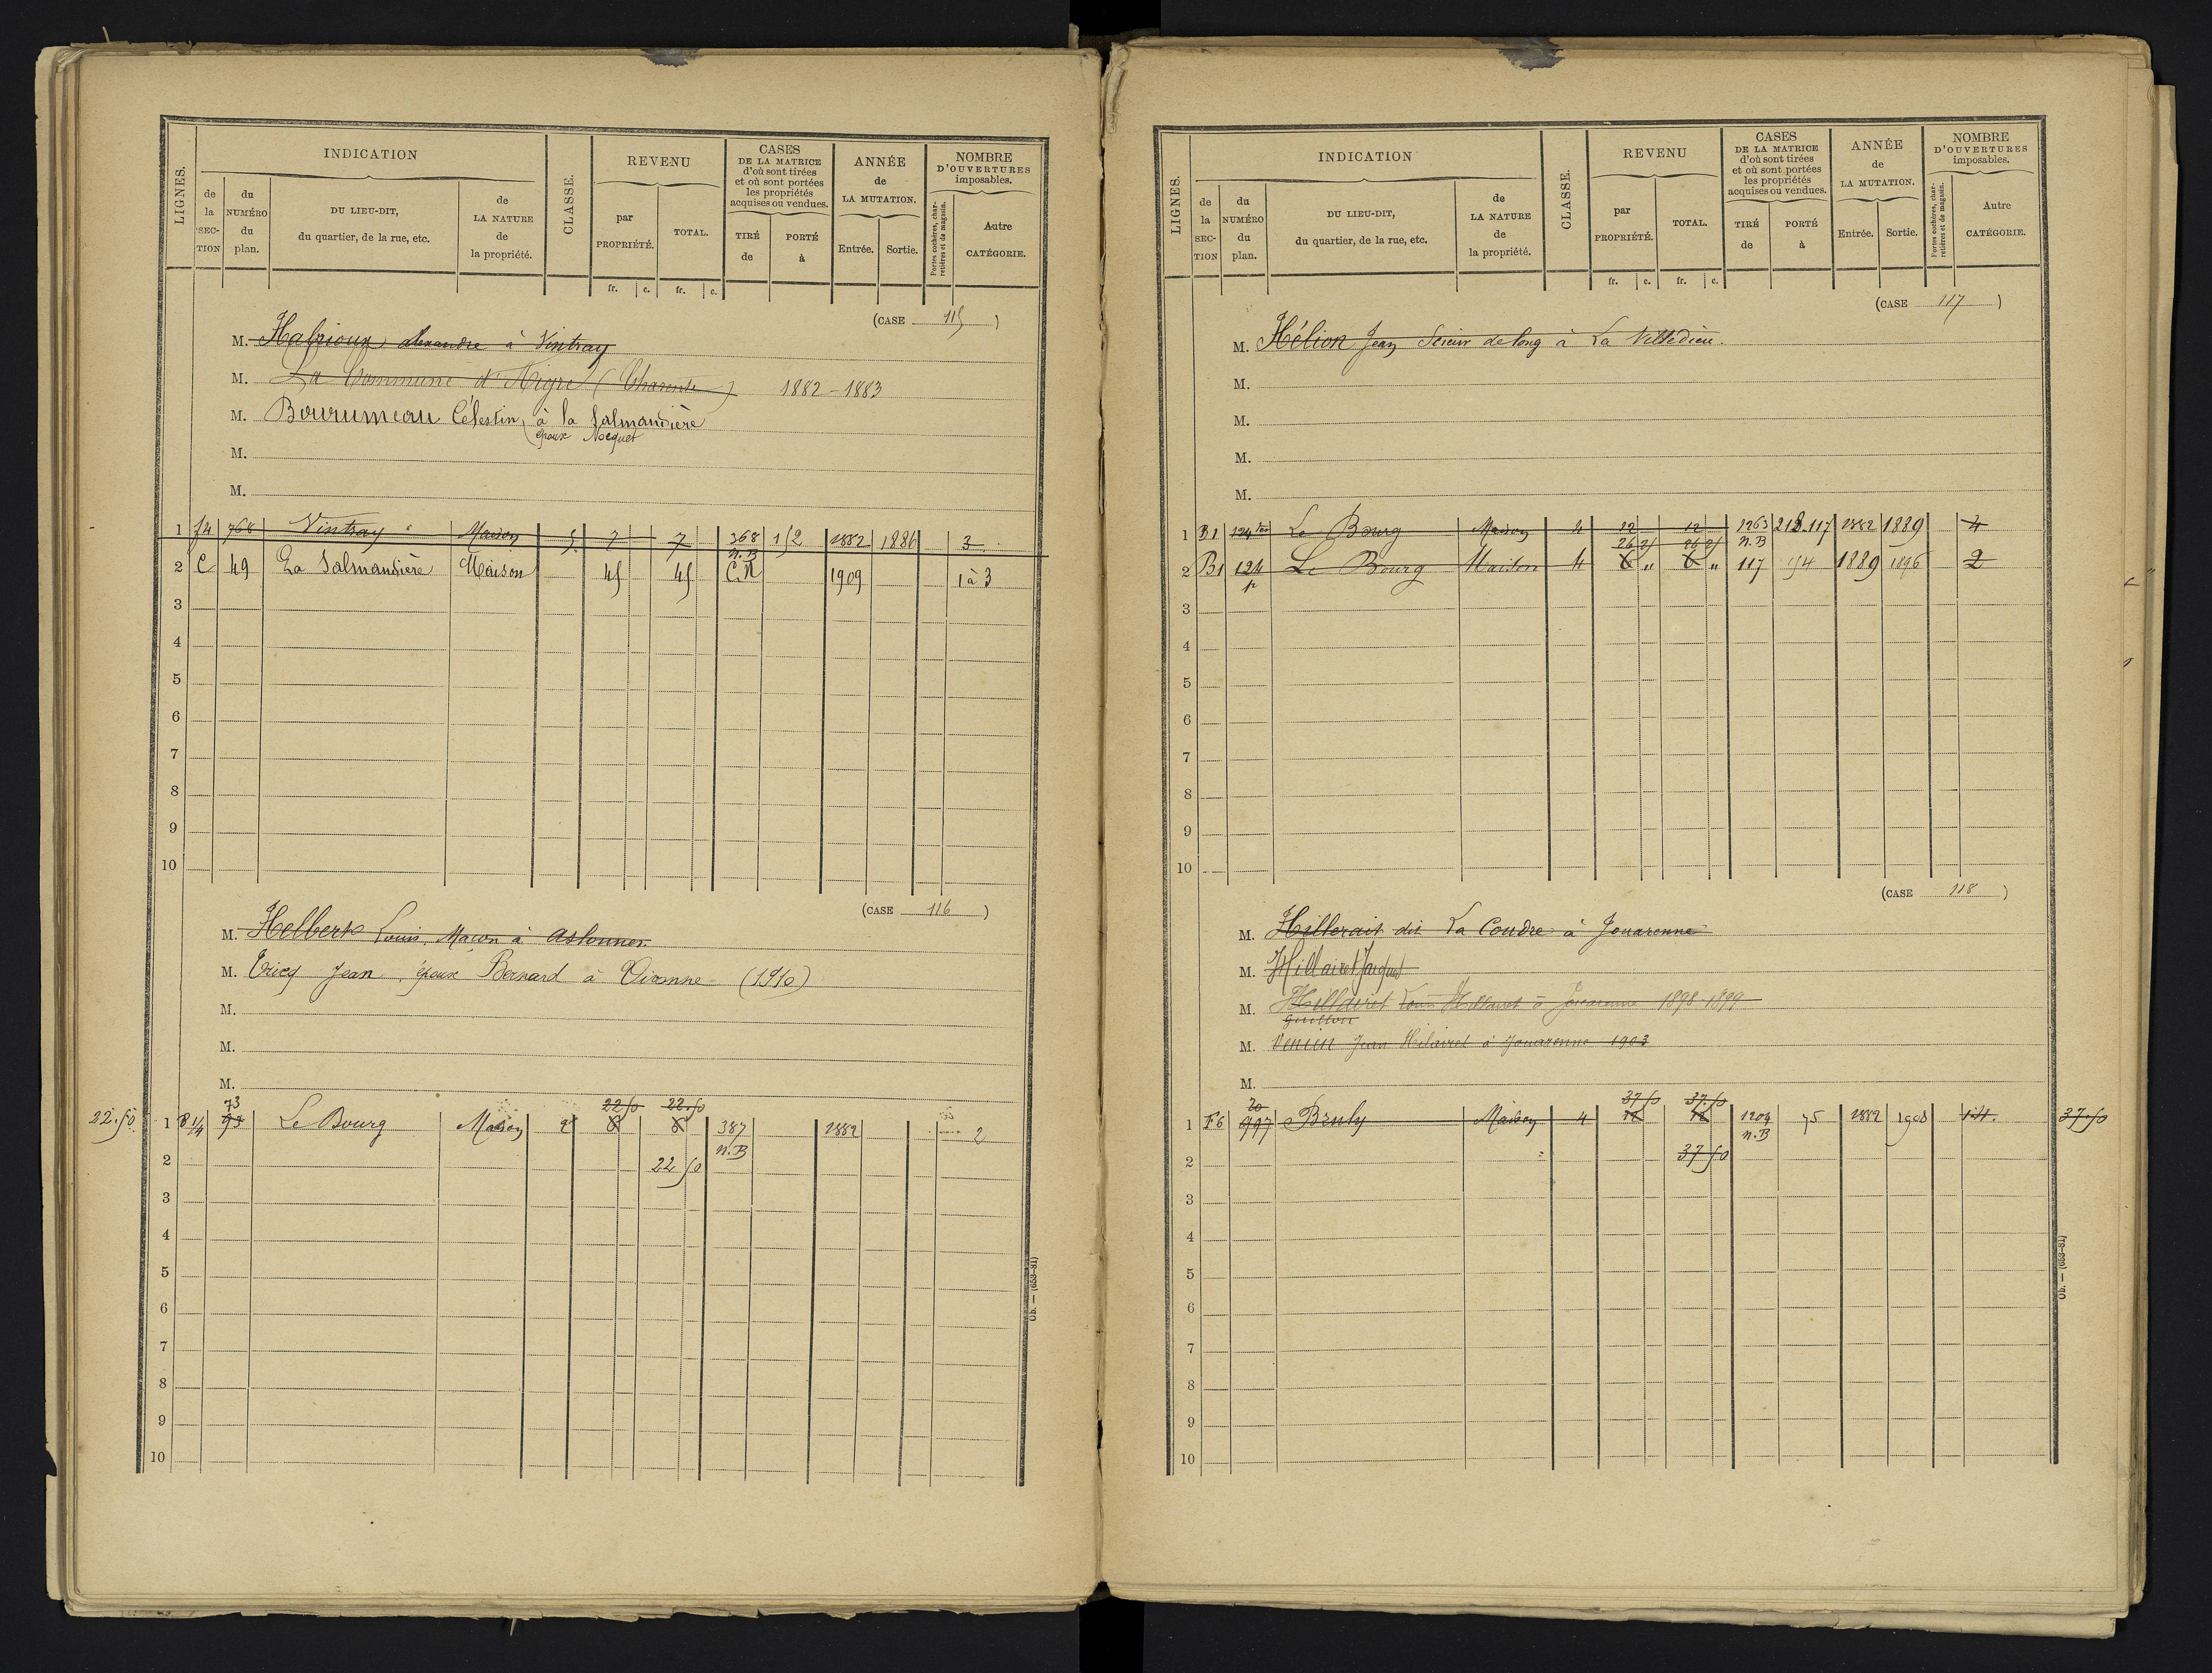 LIGNES.
INDICATION
de la SEC-TION
du NUMÉRO du plan.
DU LIEU-DIT, du quartier, de la rue, etc.
de LA NATURE de la propriété.
CLASSE.
REVENU
par PROPRIÉTÉ.
TOTAL.
fr. c. fr. c.
CASES DE LA MATRICE d'où sont tirées et où sont portées les propriétés acquises ou vendues.
TIRÉ de
PORTÉ à
ANNÉE de LA MUTATION.
Entrée. Sortie.
NOMBRE D'OUVERTURES imposables.
Portes cochères, charretières et de magasin.
Autre CATÉGORIE.
(CASE 115)
M. Habrioux Alexandre à Vintray
M. La Commune d'Aigre (Charente) 1882-1883
M. Bourumeau Célestin, à la Salmandière
époux Nocquet
M.
M.
1 768 Vintray Maison 5 7 7 368 1882 1886 3
n.B
2 C 49 La Salmandière Maison 45 45 C.N 1909 1 à 3
3
4
5
6
7
8
9
10
(CASE 116)
M. Helbert Louis, Maçon à Aslonnes
M. Jean, époux Bernard à Vivonne (1910)
M.
M.
M.
73 22 50 22.50
22.50 1 93 Le Bourg Maison 8 8 387 1882 2
n.B
2 22 50
3
4
5
6
7
8
9
10
Ob. — (653-81)
LIGNES.
INDICATION
de la SEC-TION
du NUMÉRO du plan.
DU LIEU-DIT, du quartier, de la rue, etc.
de LA NATURE de la propriété.
CLASSE.
REVENU
par PROPRIÉTÉ.
TOTAL.
fr. c. fr. c.
CASES DE LA MATRICE d'où sont tirées et où sont portées les propriétés acquises ou vendues.
TIRÉ de
PORTÉ à
ANNÉE de LA MUTATION.
Entrée. Sortie.
NOMBRE D'OUVERTURES imposables.
Portes cochères, charretières et de magasin.
Autre CATÉGORIE.
(CASE 117)
M. Hélion Jean Scieur de long à La Villedieu.
M.
M.
M.
M.
1 B1 124 ter Le Bourg Maison 4 12 12 1263 218.117 1882 1889 4
26 25 26 25 n.B
2 B1 124 p Le Bourg Maison 4 6 " 6 " 117 154 1889 1896 2
3
4
5
6
7
8
9
10
(CASE 118)
M. Hillerait dit La Coudre à Jouarenne
M. Hillairet Jacques
M. Hillairet Louis Hillairet à Jouarenne 1898-1899
Guillon
M. Jean Hilairet à Jouarenne 1903
M.
20 37 50 37.50
1 F6 997 Bruly Maison 4 12 12 1204 75 1882 1908 37.50
n.B
2 37 50
3
4
5
6
7
8
9
10
Ob. — (653-81)